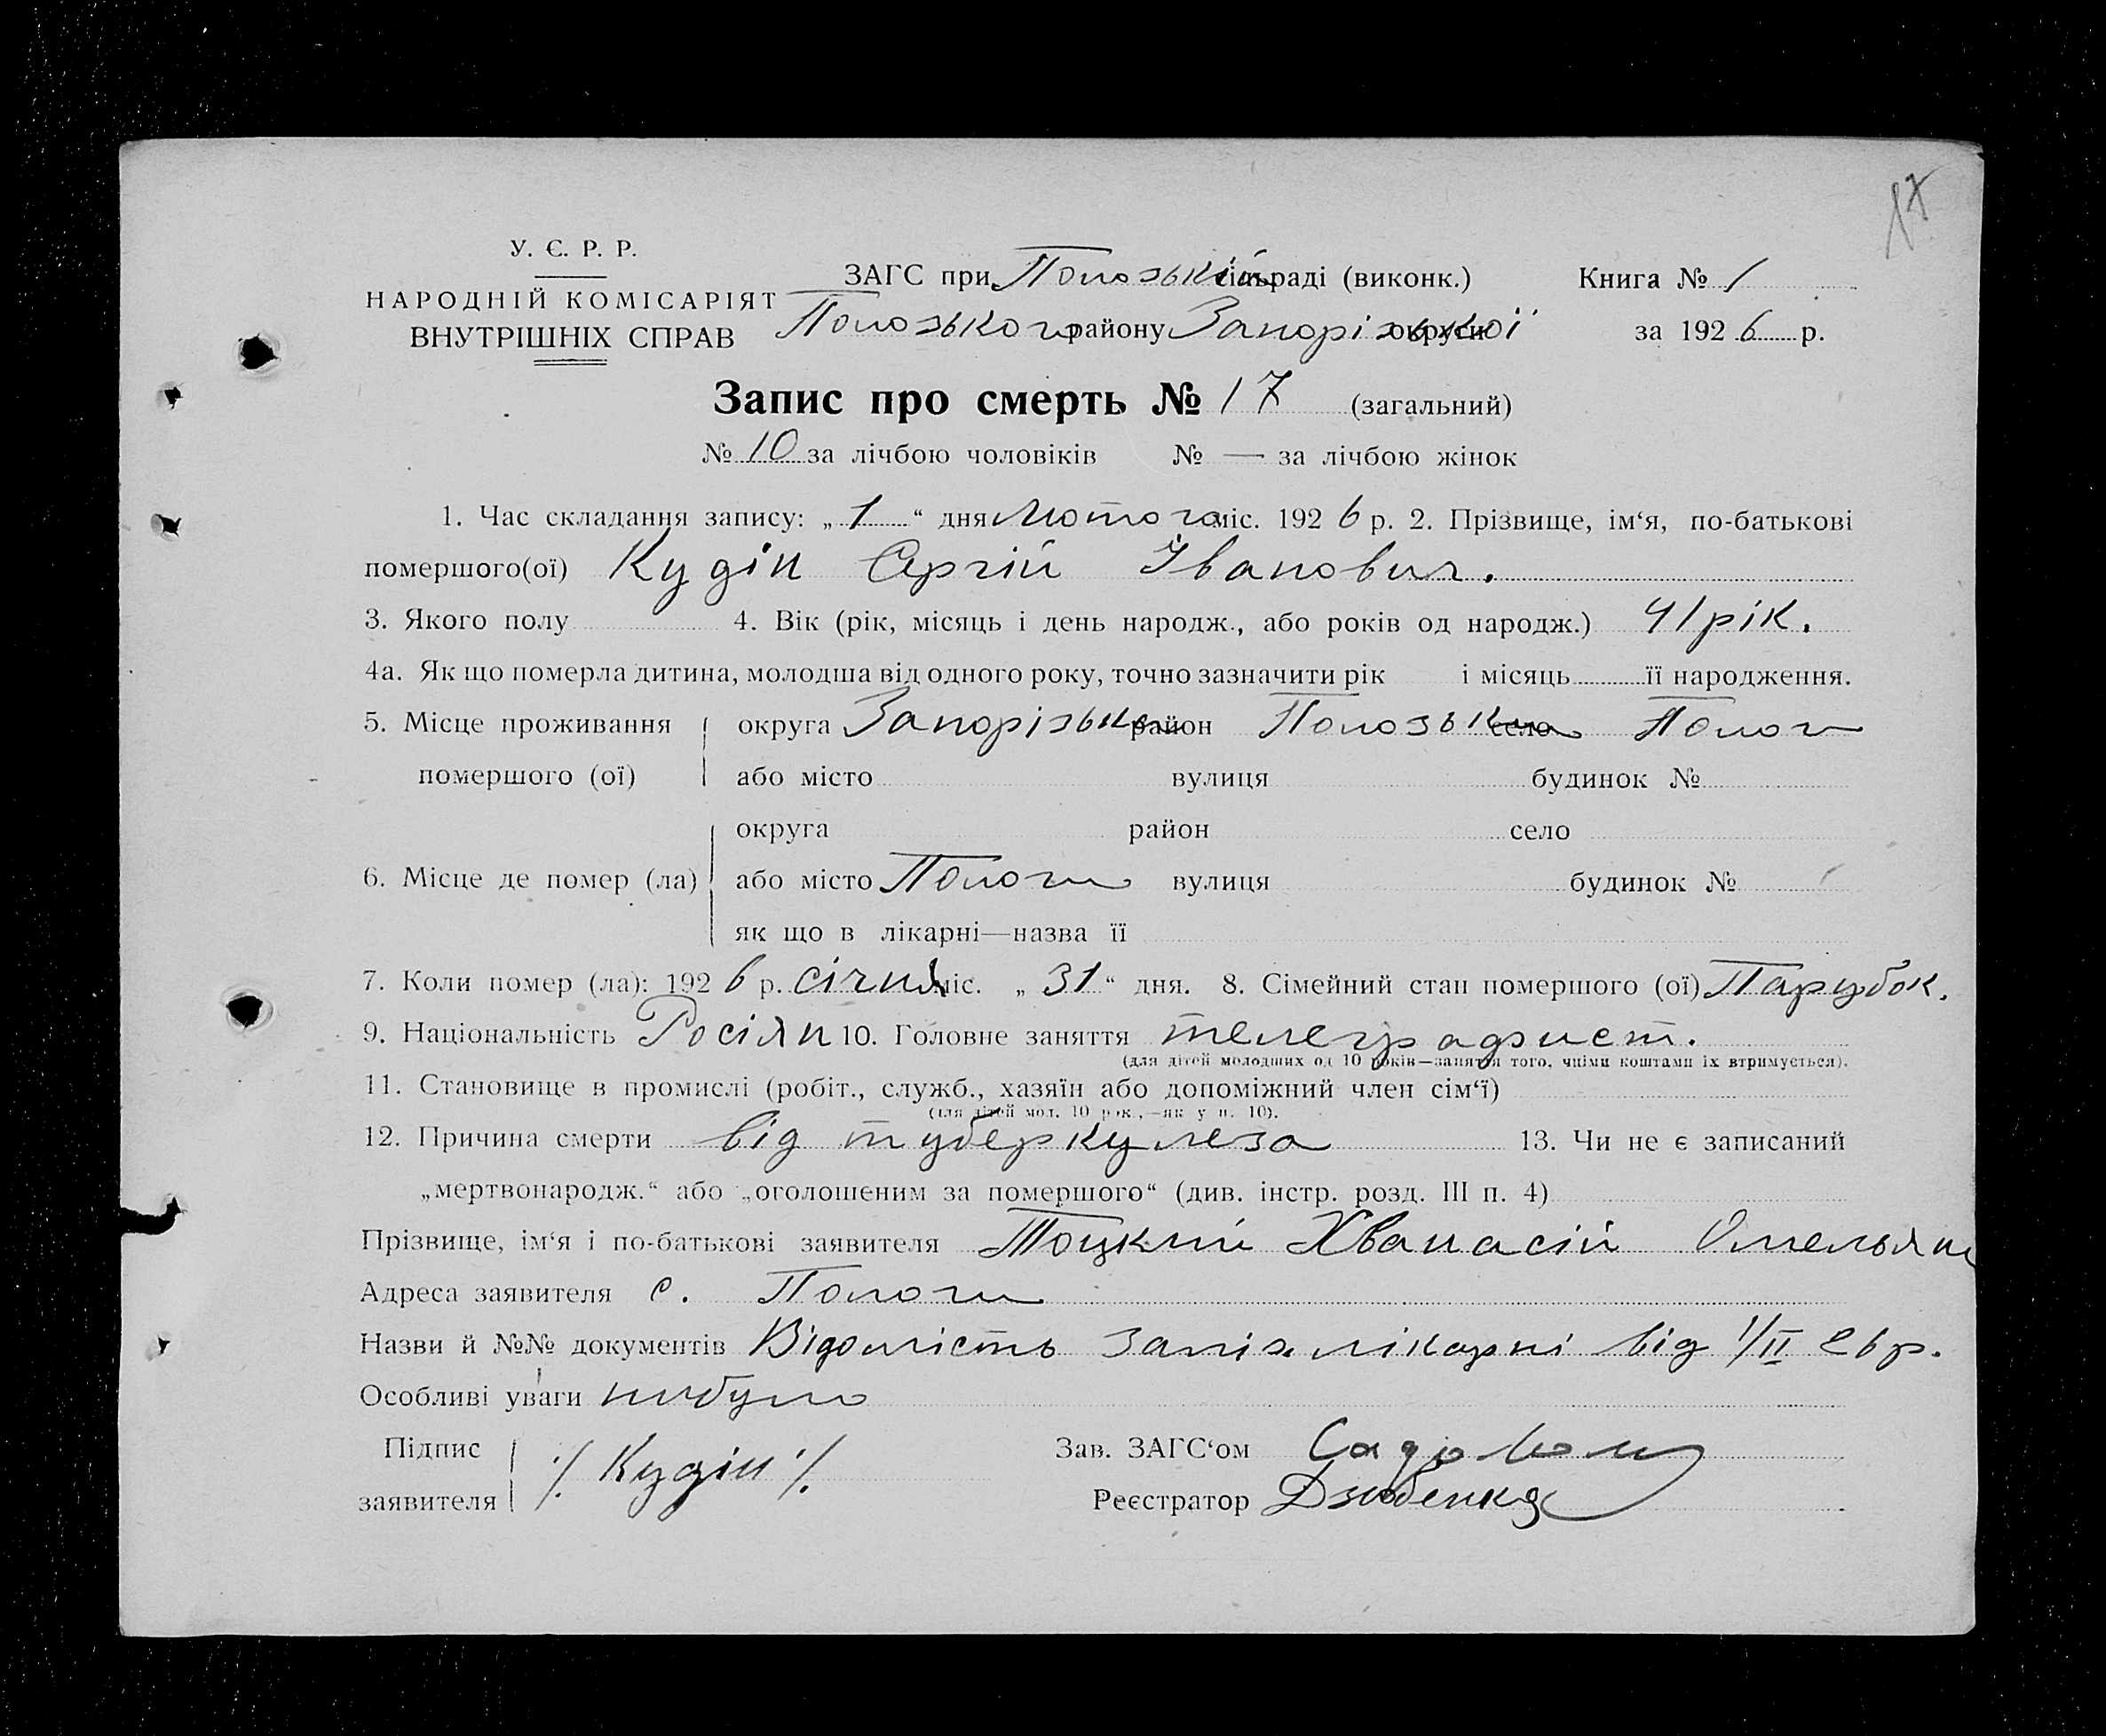 17
У. Є. Р. Р.
НАРОДНІЙ КОМІСАРІЯТ
ВНУТРІШНІХ СПРАВ
ЗАГС при Полозькій сільраді (виконк.) Книга № 1
Полозького району Запорізької округи за 1926 р.
Запис про смерть № 17 (загальний)
№ 10 за лічбою чоловіків № — за лічбою жінок
1. Час складання запису: „1“ дня Лютого міс. 1926 р. 2. Прізвище, ім‘я, по-батькові
помершого(ої) Кудін Сергій Іванович.
3. Якого полу 4. Вік (рік, місяць і день народж., або років од народж.) 41 рік.
4а. Як що померла дитина, молодша від одного року, точно зазначити рік і місяць її народження.
5. Місце проживання помершого (ої) округа Запорізька район Полозьки село Пологи
або місто вулиця будинок №
6. Місце де помер (ла) округа район село
або місто Пологи вулиця будинок №
як що в лікарні—назва її
7. Коли помер (ла): 1926 р. січня міс. „31“ дня. 8. Сімейний стан помершого (ої) Парубок.
9. Національність Росіян 10. Головне заняття телеграфист.
(для дітей молодших од 10 років—заняття того, чиїми коштами їх втримується).
11. Становище в промислі (робіт., служб., хазяїн або допоміжний член сім‘ї)
(для дітей мол. 10 рок.,—як у п. 10).
12. Причина смерти від туберкулеза 13. Чи не є записаний
„мертвонародж.“ або „оголошеним за помершого“ (див. інстр. розд. III п. 4)
Прізвище, ім‘я і по-батькові заявителя Тоцкий Хванасій Омельян
Адреса заявителя с. Пологи
Назви й №№ документів Відомість заліз. лікарні від 1/II 26 р.
Особливі уваги небуло
Підпис заявителя ./. Кудін ./. Зав. ЗАГС‘ом
Реєстратор Дзюбенко